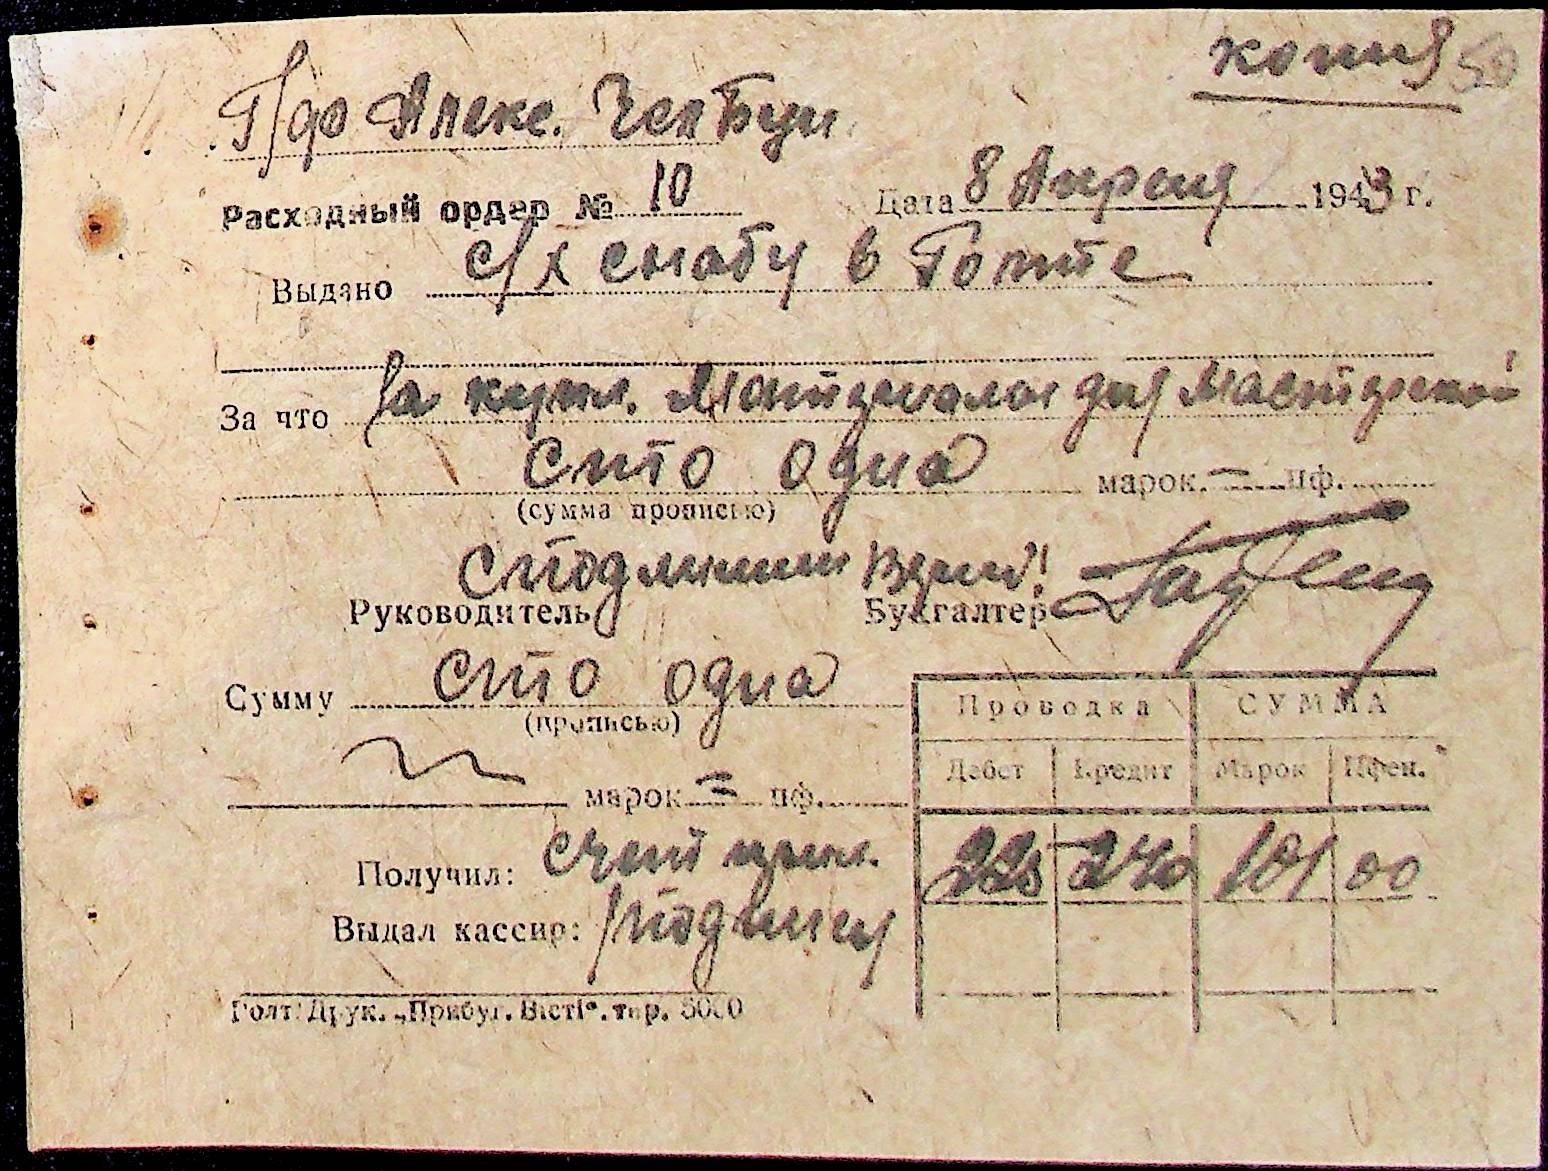 копия 50
Г/дв Алекс.
Расходный ордер № 10 Дата 8 Апреля 1943 г.
Выдано с/х снабу в Голте
За что За купл. материалы для мастерской
Сто одна марок. = пф.
(сумма прописью)
С подлинным верно!
Руководитель Бухгалтер
Сумму сто одна
(прописью)
Проводка СУММА
Дебет Кредит Марок Пфен.
марок = пф.
225 240 101 00
Получил: счет прил.
Выдал кассир: подписи
Голт. Друк. „Прибуг. Вісті“. тир. 5000